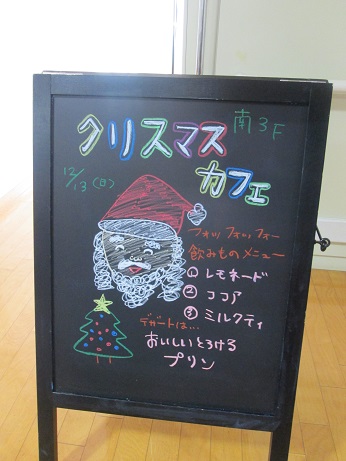 クリスマス
カフェ
南3F
12/13(日)
フォッフォッフォー
飲みものメニュー
① レモネード
② ココア
③ ミルクティ
デザートは…
おいしいとろける
プリン